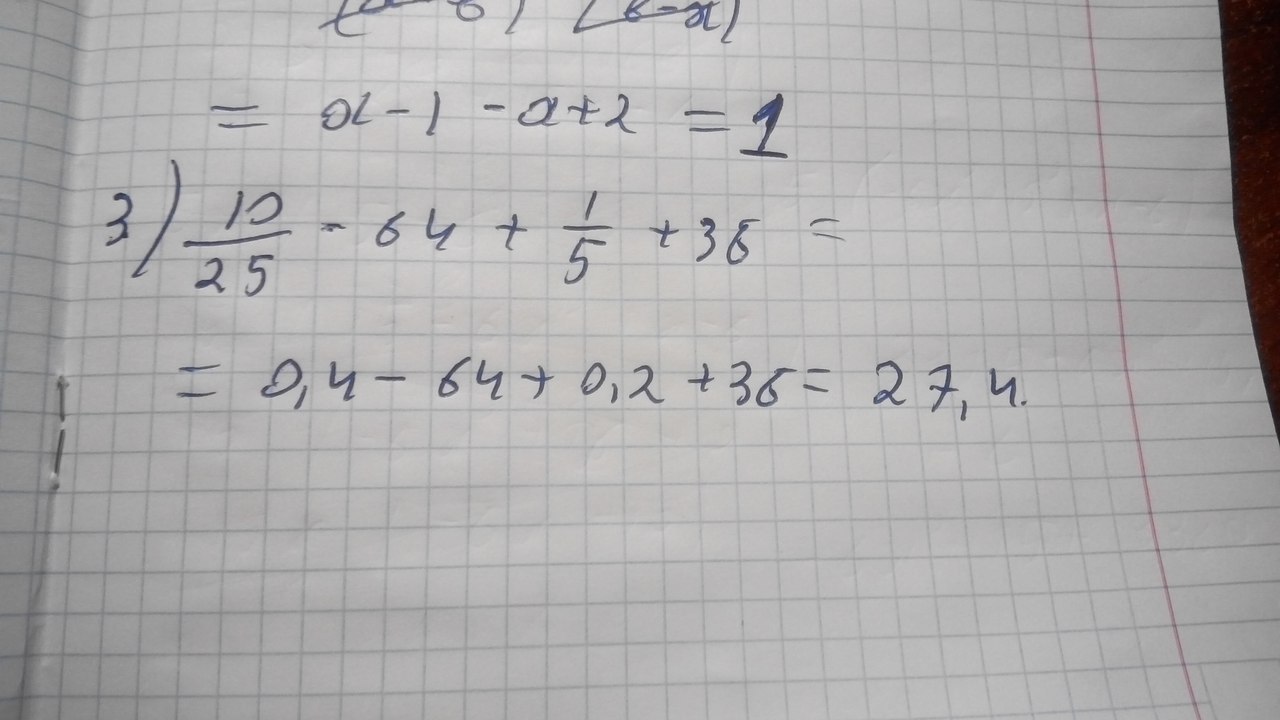 = x - 1 - x + 2 = 1
3) 10/25 - 64 + 1/5 + 36 =
= 0,4 - 64 + 0,2 + 36 = 27,4.